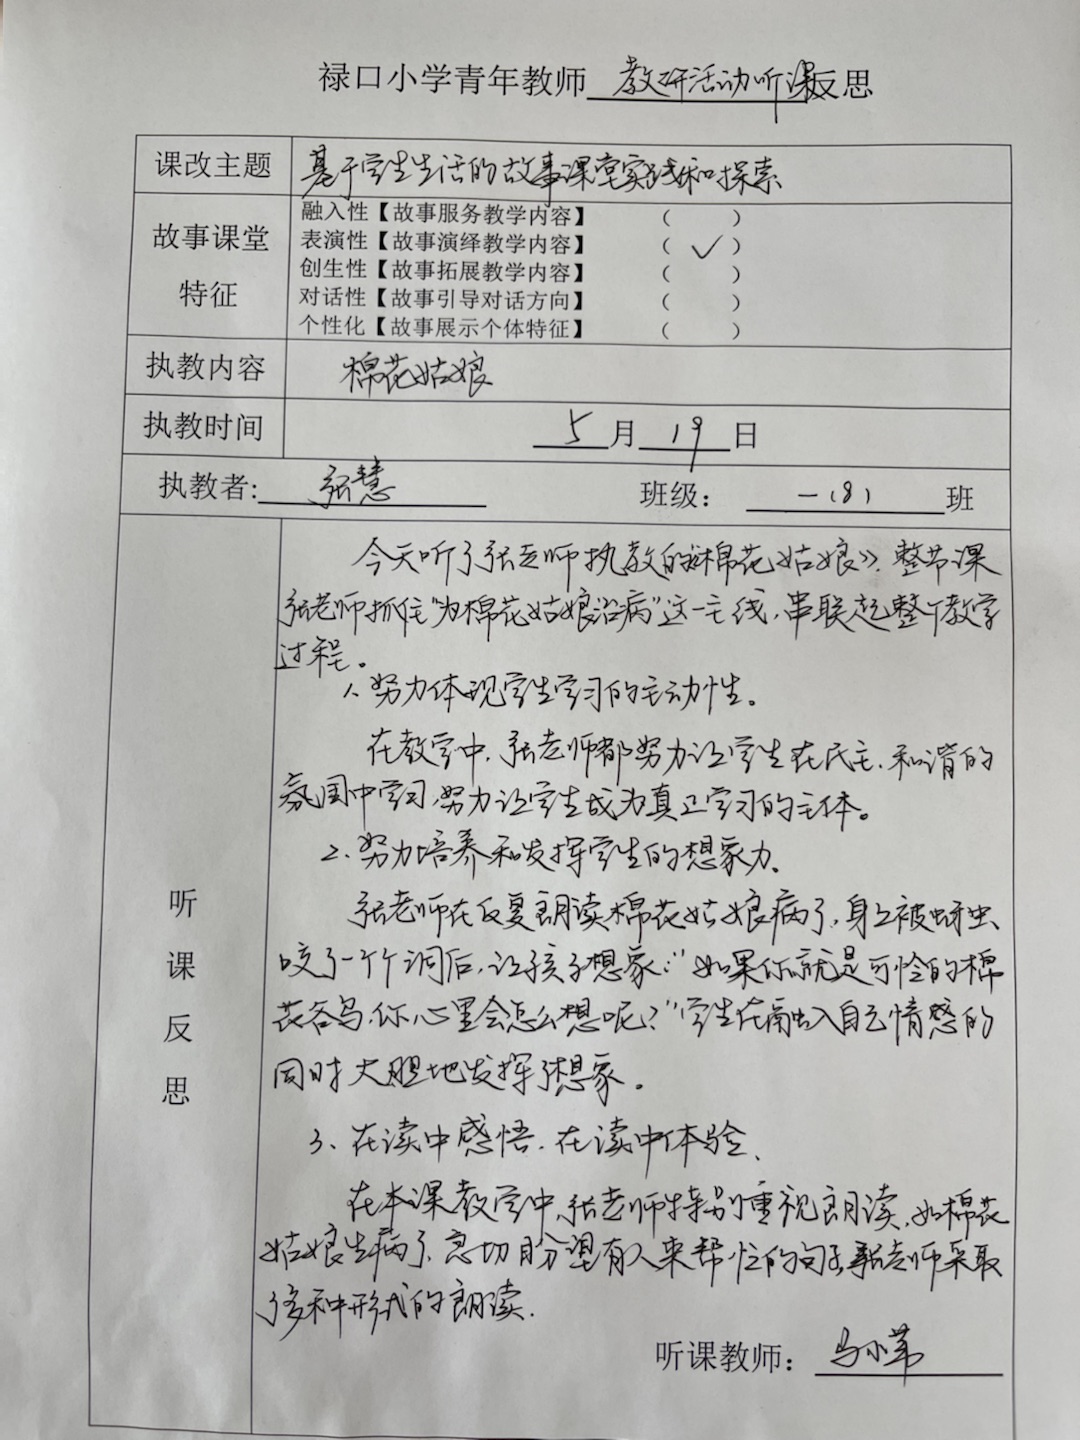 禄口小学青年教师 教研活动听课反思
课改主题 基于学生生活的故事课堂实践和探索
故事课堂特征
融入性【故事服务教学内容】 ( )
表演性【故事演绎教学内容】 ( ✓ )
创生性【故事拓展教学内容】 ( )
对话性【故事引导对话方向】 ( )
个性化【故事展示个体特征】 ( )
执教内容 棉花姑娘
执教时间 5月19日
执教者: 张慧 班级: 一(8)班
听课反思
今天听了张老师执教的《棉花姑娘》.整节课
张老师抓住"为棉花姑娘治病"这一主线,串联起整个教学
过程。
1、努力体现学生学习的主动性。
在教学中,张老师都努力让学生在民主、和谐的
氛围中学习,努力让学生成为真正学习的主体。
2、努力培养和发挥学生的想象力.
张老师在反复朗读棉花姑娘病了,身上被蚜虫
咬了一个个洞后,让孩子想象:"如果你就是可怜的棉
花姑娘,你心里会怎么想呢?"学生在融入自己情感的
同时大胆地发挥了想象.
3、在读中感悟.在读中体验、
在本课教学中,张老师特别重视朗读,如棉花
姑娘生病了,急切盼望有人来帮忙的句子,张老师采取
了多种形式的朗读.
听课教师: